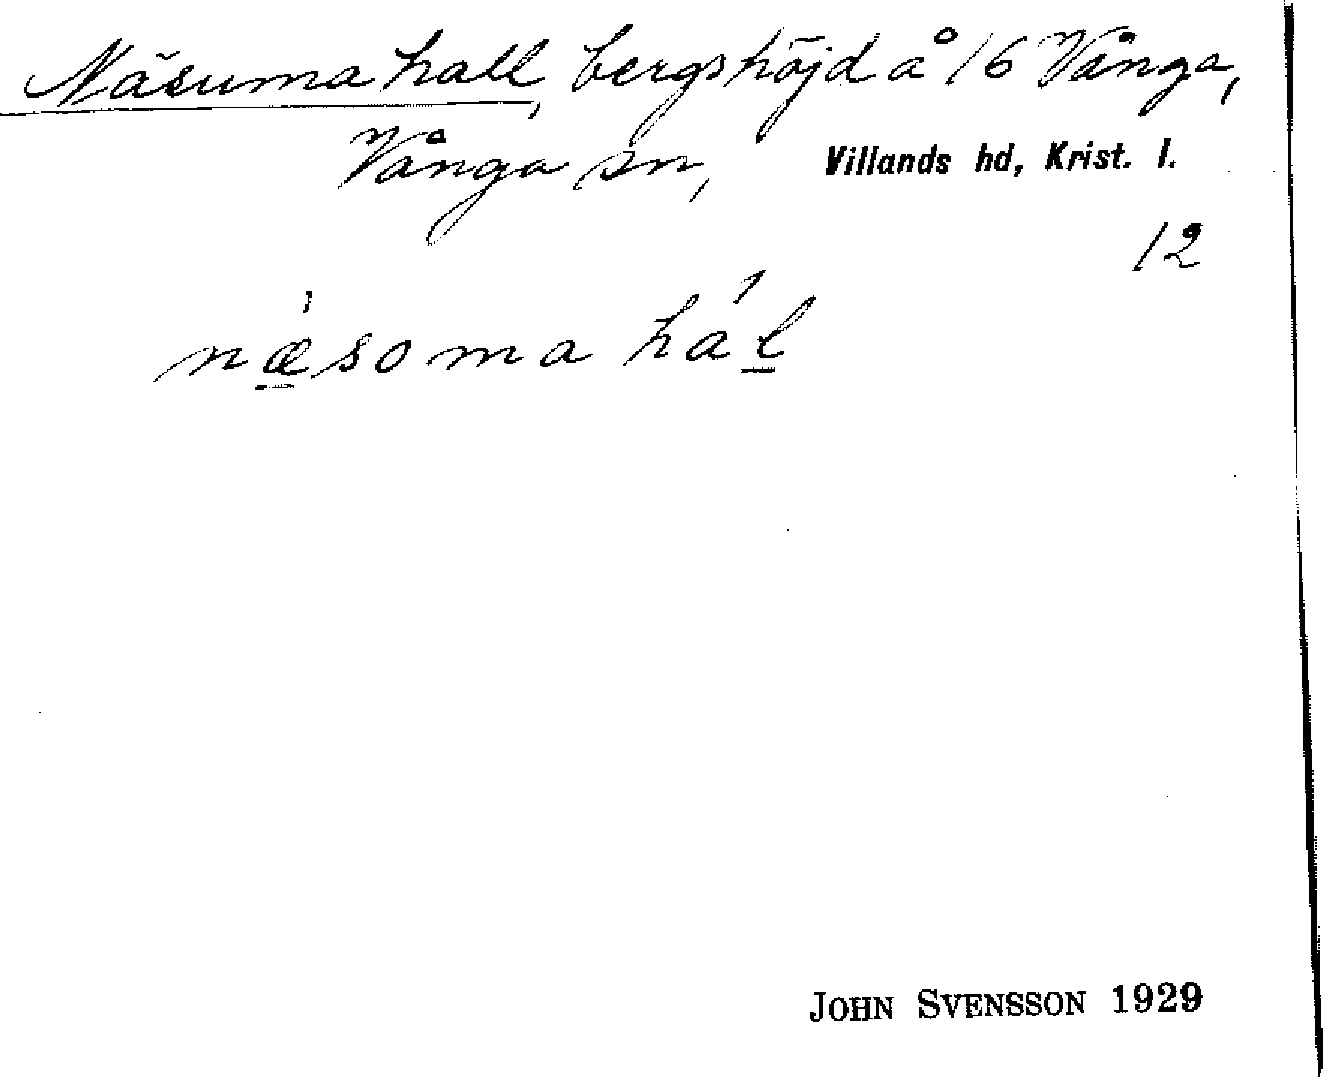 Näsuma hall, bergshöjd å 16 Vånga,
Vånga sn, Villands hd, Krist. l.
12
næ̱soma háḻ
JOHN SVENSSON 1929